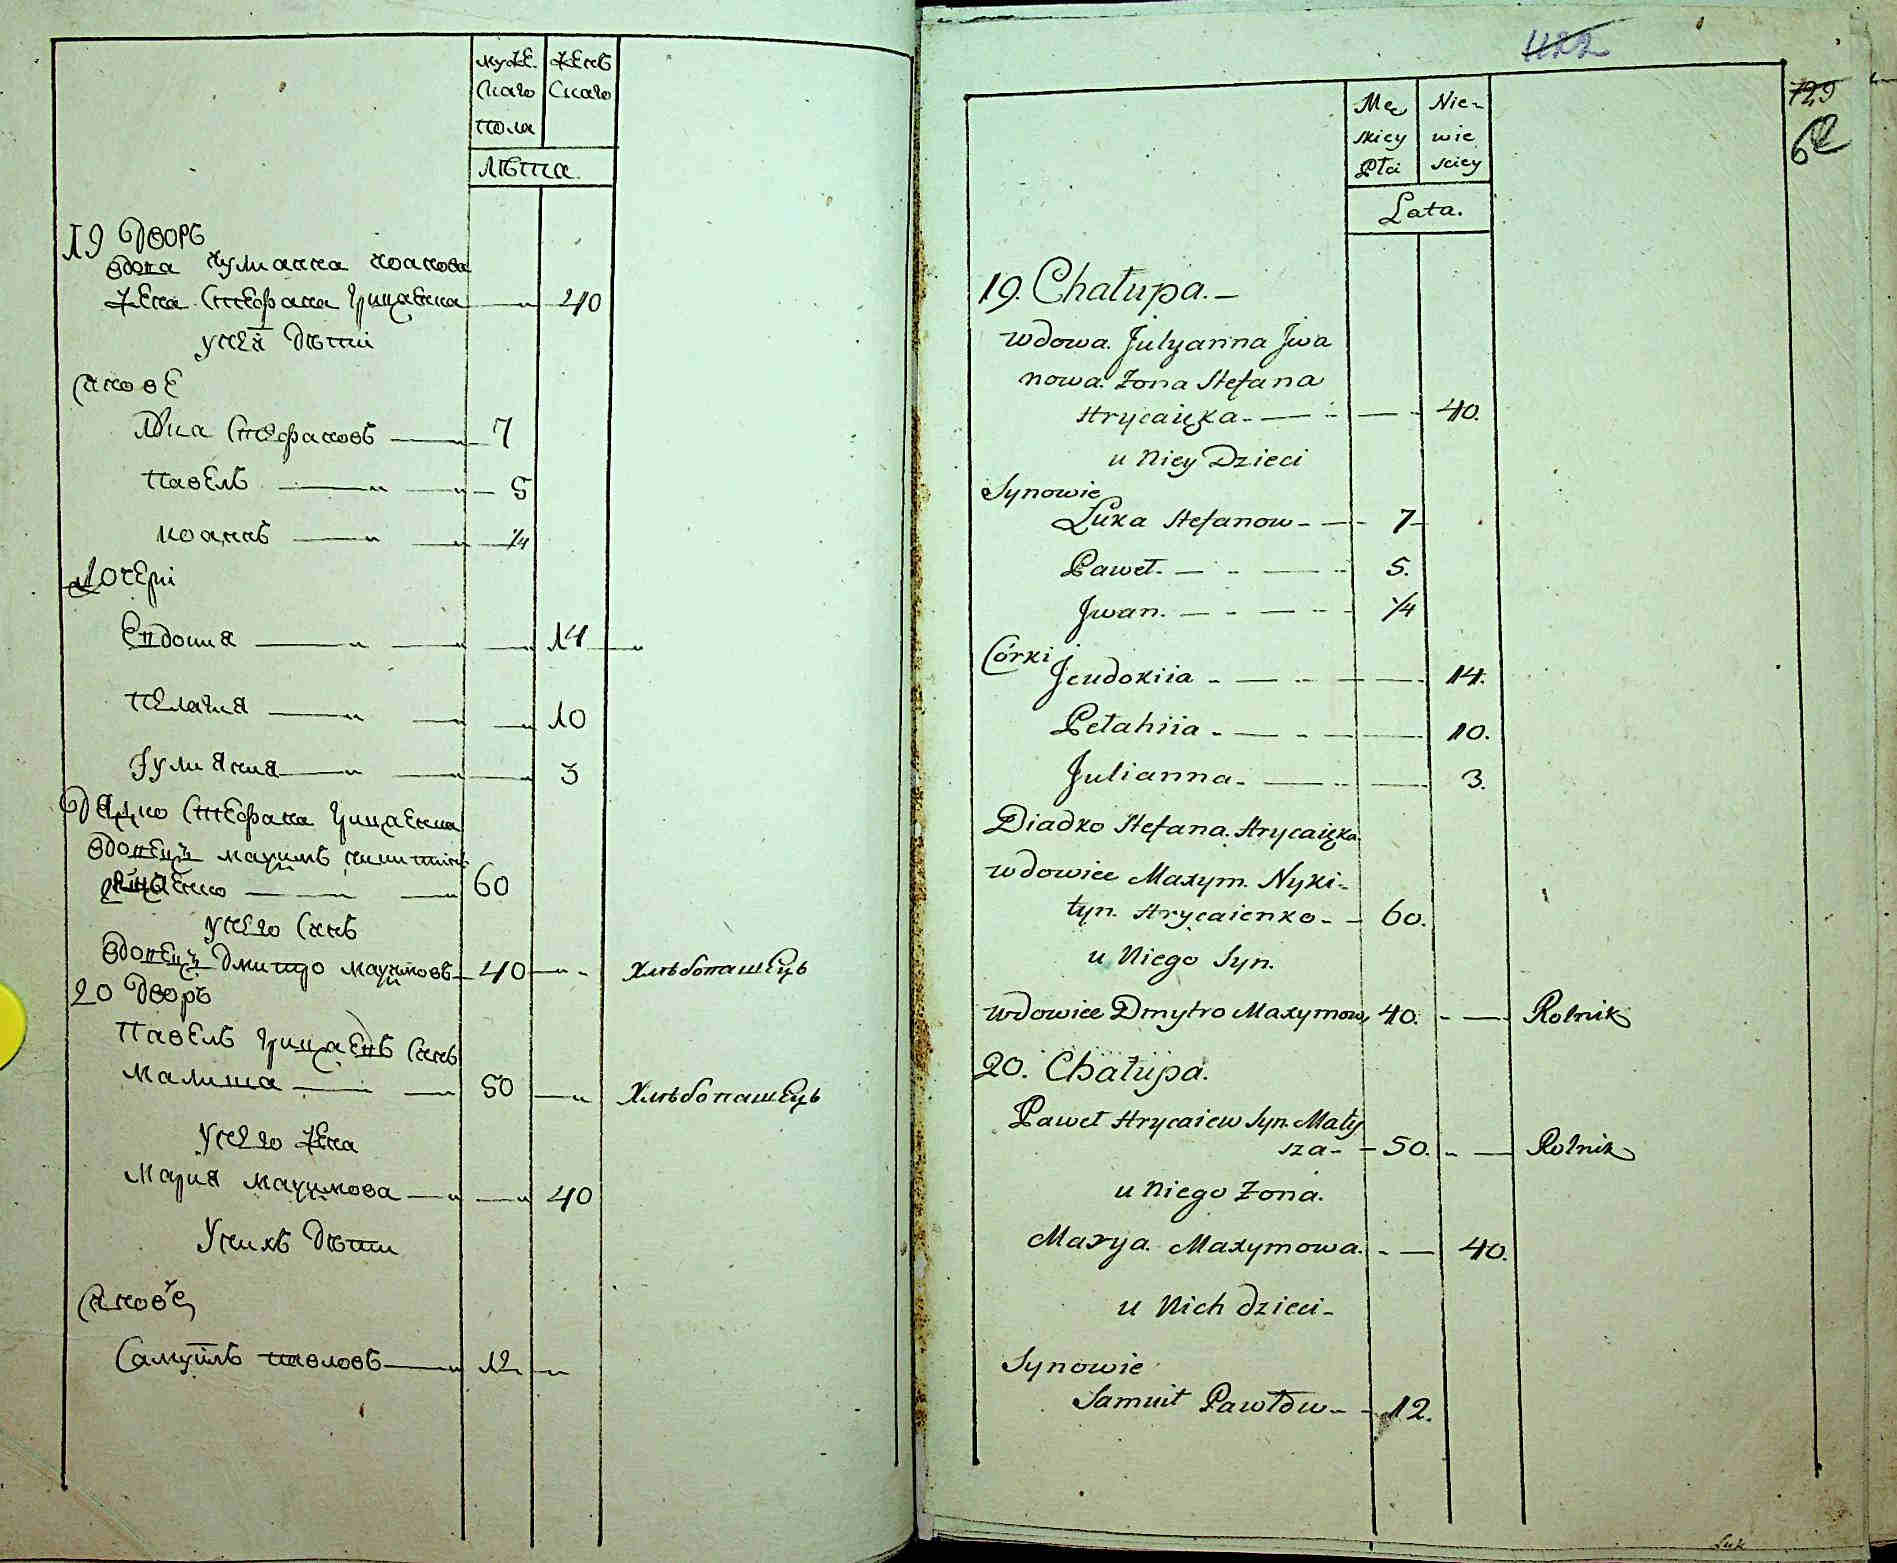 муже
скаго
пола
женъ
скаго
лѣта
19 дворъ
вдова иулианна иоанова
жена Стефана грицаенка
40
унея дѣти
Синове
Лука Стефановъ
7
павелъ
5
иоаннъ
1/4
Дочери
Евдокия
14
пелагия
10
Иулияния
3
дядко Стефана грицаенка
вдовецъ максимъ никитинъ
грицаенко
60
унего Синъ
вдовецъ дмитро максимовъ
40
Хлѣбопашецъ
20 дворъ
павелъ грицаевъ Синъ
малиша
50
Хлѣбопашецъ
Унего жена
Мария максимова
40
Унихъ дѣти
Синове
Самуилъ павловъ
12
1122
729
62
Mę
skiey
Płci
Nie-
wie
sciey
Lata.
19. Chałupa.
wdowa Julyanna Jwa
nowa Zona Stefana
Hrycaięka
40.
u Niey Dzieci
Synowie
Luka Stefanow
7
Paweł.
5.
Jwan.
1/4
Córki
Jeudokiia
14.
Pełahiia
10.
Julianna
3.
Diadko Stefana Hrycaięka
wdowiec Maxym. Nyki-
tyn. Hrycaienko
60.
u Niego Syn.
wdowiec Dmytro Maxymow
40.
Rolnik
20. Chałupa.
Paweł Hrycaiew Syn Mały
sza
50.
Rolnik
u Niego Zona.
Marya Maxymowa.
40.
u Nich dzieci
Synowie
Samuił Pawłów
12.